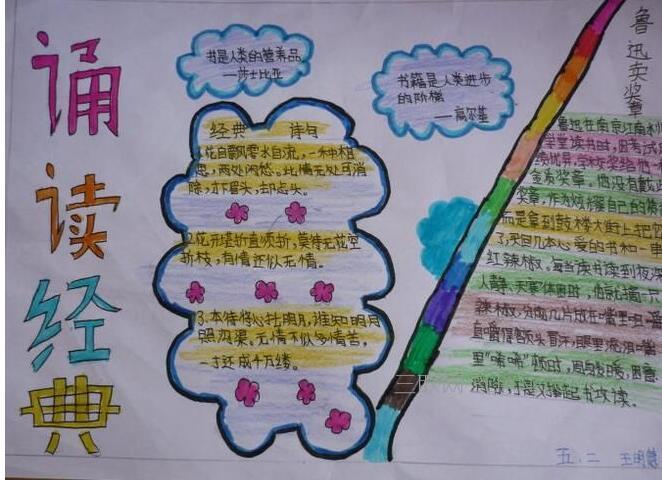 诵读经典
书是人类的营养品
——莎士比亚
书籍是人类进步
的阶梯
——高尔基
经典 诗句
1.花自飘零水自流，一种相
思，两处闲愁。此情无处可消
除，才下眉头，却
2.花开堪折直须折，莫待无花空
折枝，有情还似无情。
3.本待将心托明月，谁知明月
照沟渠。无情不似多情苦，
一寸还成千万缕。
鲁迅卖奖章
鲁迅在南京江南水
学堂读书时，因考试成
绩优异，学校奖给他一
金质奖章。他没有
奖章，作为炫耀自己的
而是拿到鼓楼大街上把它
了，买回几本心爱的书和一串
红辣椒。每当读书读到夜深
人静、天寒
辣椒，分成几片放在嘴里咀
直嚼得额头冒汗，眼里流泪，嘴
里"唏唏"顿时，周身发暖，困意
消除，于是又捧起书攻读。
五.二 王明